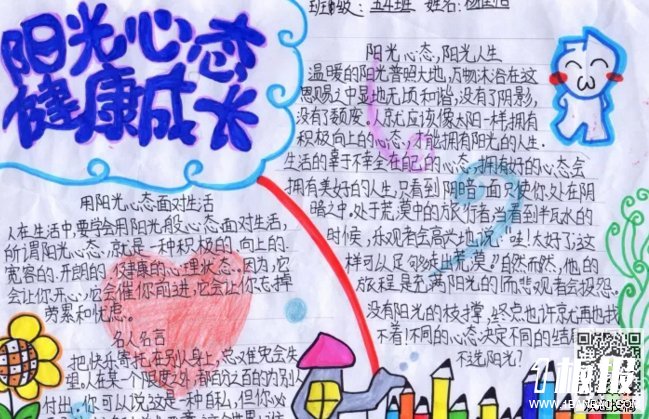 班级：五4班 姓名：杨
阳光心态
健康成长
用阳光心态面对生活
人在生活中，要学会用阳光般心态面对生活，
所谓阳光心态，就是一种积极的、向上的、
宽容的、开朗的、健康的心理状态。因为，它
会让你开心，它会催你前进，它会让你忘掉
劳累和忧虑。
名人名言
把快乐寄托在别人身上，总难免会失
望。人在某一个限度之外，都百分之百的为别人
付出，你可以说这是一种自私，但你必
阳光心态，阳光人生
温暖的阳光普照大地，万物沐浴在这
恩赐之中显地无顷和谐，没有了阴影，
没有了颓废。人就应该像太阳一样拥有
积极向上的心态，才能拥有阳光的人生。
生活的幸于不幸全在自己的心态，拥有好的心态会
拥有美好的人生，只看到阴暗一面只使你处在阴
暗之中，处于荒漠中的旅行者当看到半瓦水的
时候，乐观者会高兴地说：“哇！太好了，这
样可以足够走出荒漠。”自然而然，他的
旅程是充满阳光的而悲观者会报怨
没有阳光的枝撑，终点也许京尤再也找
不着！不同的心态决定不同的结局
不选阳光？
板报